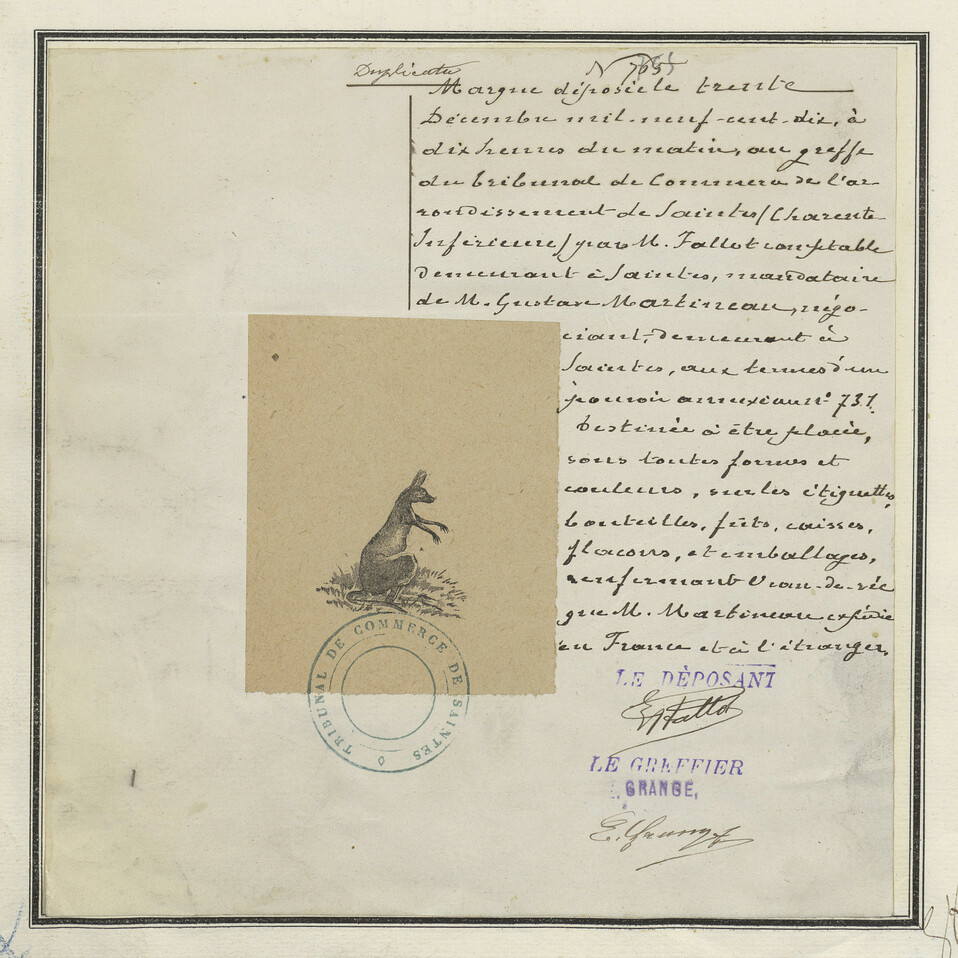 Duplicata
N° 765
Marque déposée le trente
Décembre mil-neuf-cent-dix, à
dix heures du matin, au greffe
du tribunal de Commerce de l'ar-
rondissement de Saintes (Charente
Inférieure) par M. Fallot comptable
demeurant à Saintes, mandataire
de M. Gustave Martineau, négo-
ciant, demeurant à
Saintes, aux termes d'un
pouvoir annexé au n° 731.
Destinée à être placée,
sous toutes formes et
couleurs, sur les étiquettes,
bouteilles, fûts, caisses,
flacons, et emballages,
renfermant l'eau-de-vie
que M. Martineau expédie
en France et à l'étranger.
TRIBUNAL DE COMMERCE DE SAINTES
LE DÉPOSANT
Fallot
LE GREFFIER
GRANGÉ,